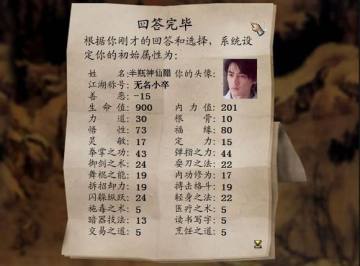 回答完毕
根据你刚才的回答和选择，系统设
定你的初始属性为：
姓名：半瓶神仙醋 你的头像：
江湖称号：无名小卒
善恶：-15
生命值：900 内力值：201
力道：30 根骨：10
悟性：73 福缘：80
灵敏：17 定力：15
拳掌之功：43 弹指之力：44
御剑之术：24 耍刀之法：22
舞棍之能：19 内功修为：17
拆招卸力：19 搏击格斗：19
闪躲纵跃：24 轻身之法：22
施毒之术：5 医疗之术：5
暗器技法：13 读书写字：5
交易之道：5 烹饪之道：5